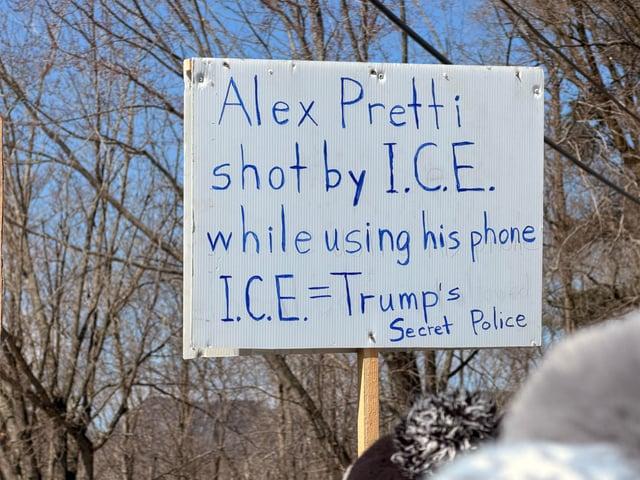 Alex Pretti
shot by I.C.E.
while using his phone
I.C.E. = Trump's
Secret Police